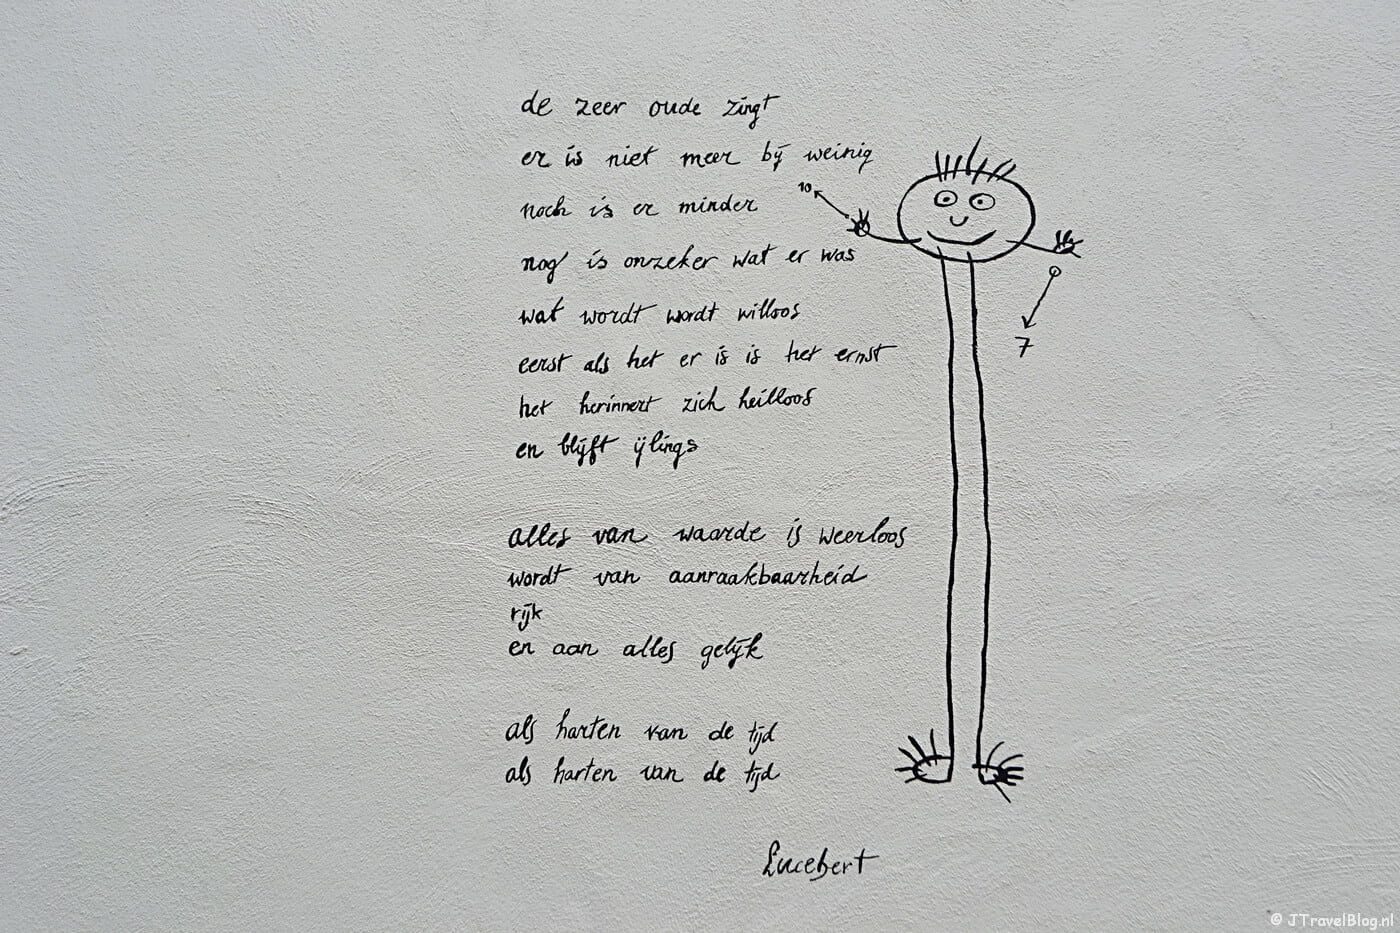 de zeer oude zingt
er is niet meer bij weinig
noch is er minder
nog is onzeker wat er was
wat wordt wordt willoos
eerst als het er is is het ernst
het herinnert zich heilloos
en blijft ijlings
alles van waarde is weerloos
wordt van aanraakbaarheid
rijk
en aan alles gelijk
als harten van de tijd
als harten van de tijd
Lucebert
10
7
© JTravelBlog.nl